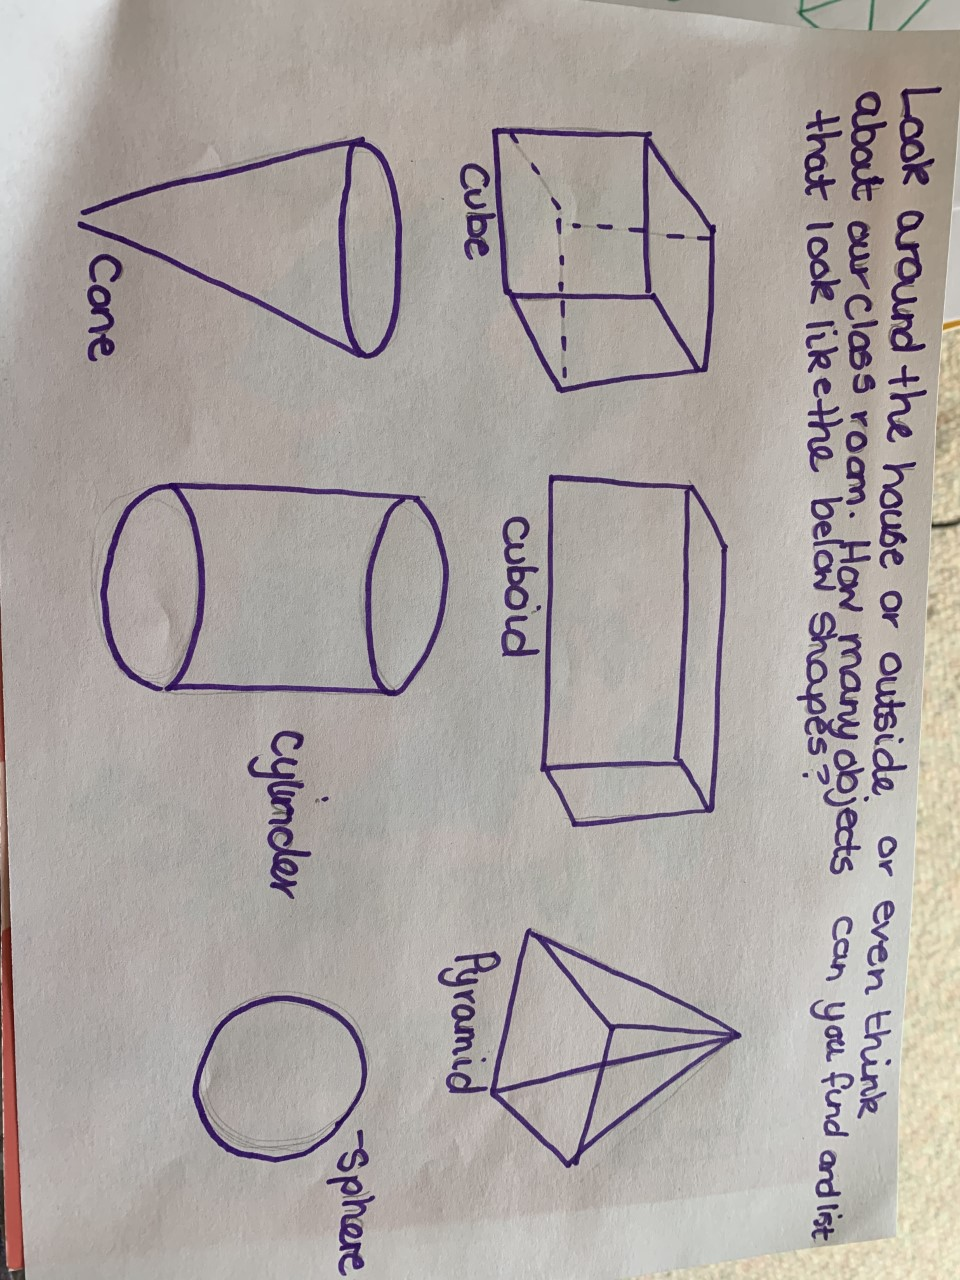 Look around the house or outside or even think
about our class room. How many objects can you find and list
that look like the below shapes?
cube
cuboid
Pyramid
Cone
Cylinder
Sphere